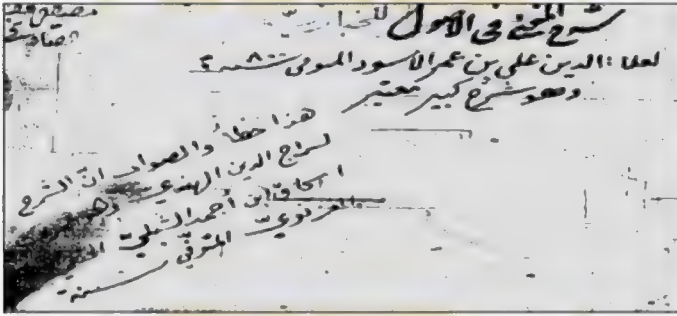 شرح المغني في الاصول للخبازي
لعلاء الدين علي بن عمر الاسود المتوفى سنة ٨٠٠
وهو شرح كبير معتبر
هذا خطأ والصواب ان الشرح
لسراج الدين الهندي
اسحاق ابن أحمد الشبلي
الغزنوي المتوفى سنة